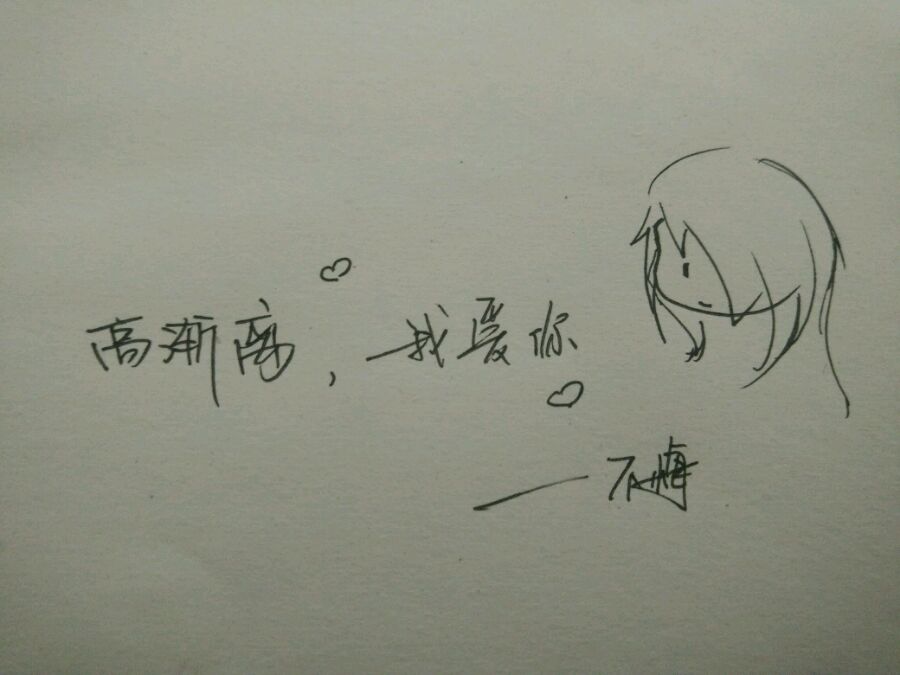 高渐离，我爱你
——不悔